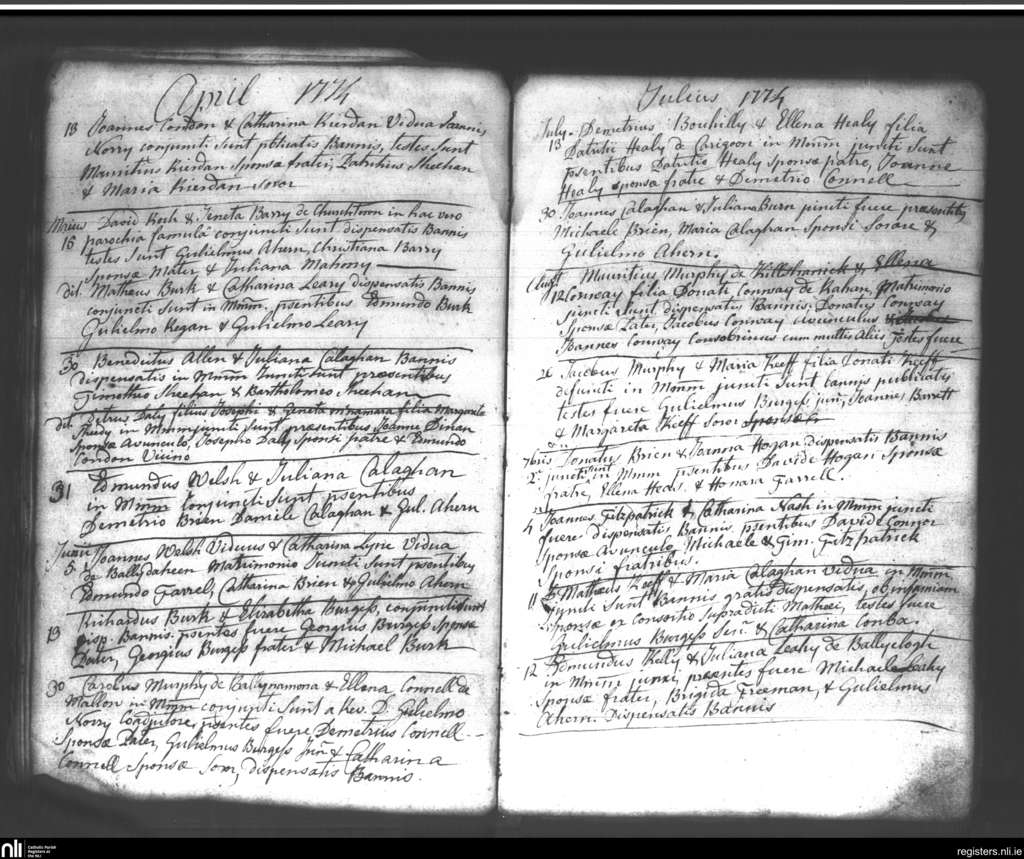 April 1774
13 Joannes Condon & Catharina Kierdan Vidua Joannis
Norry conjuncti Sunt publicatis Bannis, testes Sunt
Mauritius Kierdan Sponsæ frater, Patrikius Sheehan
& Maria Kierdan Soror
David Roch & Jeneta Barry de Churchtown in hac vero
16 parochia famula conjuncti Sunt dispensatis Bannis
testes Sunt Gulielmus Ahern, Christiana Barry
Sponsæ Mater & Juliana Mahony
dit. Matheus Burk & Catharina Leary dispensatis Bannis
conjuncti Sunt in Mnm. psentibus Edmundo Burk
Gulielmo Regan & Gulielmo Leary
30 Benedictus Allen & Juliana Calaghan Bannis
dispensatis in Mnm Juncti Sunt præsentibus
Timotheo Sheehan & Bartholomeo Sheehan
dit. Petrus Daly filius Josephi & Jeneta mnamara filia Margarita
Sheedy in Mnm juncti Sunt præsentibus Joanne Dinan
Sponsæ avunculo, Josepho Daly Sponsi patre & Edmundo
Condon Vicino
31 Edmundus Welsh & Juliana Calaghan
in Mnm Conjuncti Sunt psentibus
Demetrio Brien Daniele Calaghan & Gul. Ahern
Junii Joannes Welsh Viduus & Catharina Lyne Vidua
5 de Ballydaheen Matrimonio Juncti Sunt psentibus
Edmundo Farrel, Catharina Brien & Gulielmo Ahern
Richardus Burk & Elizabetha Burgess, conjuncti Sunt
13 disp. Bannis. psentes fuere Georgius Burgess Sponsæ
Pater, Georgius Burgess frater & Michael Burk
30 Carolus Murphy de Ballynamona & Ellena Connell de
Mallow in Mnm conjuncti Sunt a Rev. D. Gulielmo
Norry Coadjutore, psentes fuere Demetrius Connell
Sponsæ Pater, Gulielmus Burgess Junr & Catharina
Connell Sponsæ Soror, dispensatis Bannis.
Julius 1774
July Demetrius Bouhilly & Ellena Healy filia
13 Patritii Healy de Carigoon in Mnm juncti Sunt
psentibus Patritio Healy Sponsæ patre, Joanne
Healy sponsæ fratre & Demetrio Connell
30 Joannes Calaghan & Juliana Burn juncti fuere præsentibus
Michaele Brien, Maria Calaghan Sponsi Sorore &
Gulielmo Ahern.
Augt Mauritius Murphy de & Ellena
12 Conway filia Donati Conway de Rahan, Matrimonio
juncti Sunt dispensatis Bannis, Donatus Conway
Sponsæ Pater, Jacobus Conway avunculus
Joannes Conway Consobrinus cum multis Aliis testes fuere
Jacobus Murphy & Maria Keeff filia Donati Keeff
defuncti in Mnm juncti Sunt bannis publicatis
testes fuere Gulielmus Burgess junr, Joannes Barrett
& Margarita Keeff Soror Sponsæ
7bris Donatus Brien & Joanna Hogan dispensatis Bannis
2 juncti Sunt in Mnm psentibus Davide Hogan Sponsæ
fratre, Ellena & Honora Farrell.
4 Joannes Fitzpatrick & Catharina Nash in Mnm juncti
fuere dispensatis Bannis psentibus Davide Connor
Sponsæ avunculo Michaele & Gim. Fitzpatrick
Sponsi fratribus.
11 Matheus Keeff & Maria Calaghan Vidua in Mnm
juncti Sunt Bannis gratis dispensatis, ob infamiam
Sponsæ ex Consortio Supradicti Mathei, testes fuere
Gulielmus Burgess Senr. & Catharina Comba.
12 Edmundus Kelly & Juliana Leahy de Ballyclogh
in Mnm juncti, præsentes fuere Michael Leahy
Sponsæ frater, Brigida Freeman, & Gulielmus
Ahern. Dispensatis Bannis
nli Catholic Parish
Registers at
the NLI
registers.nli.ie